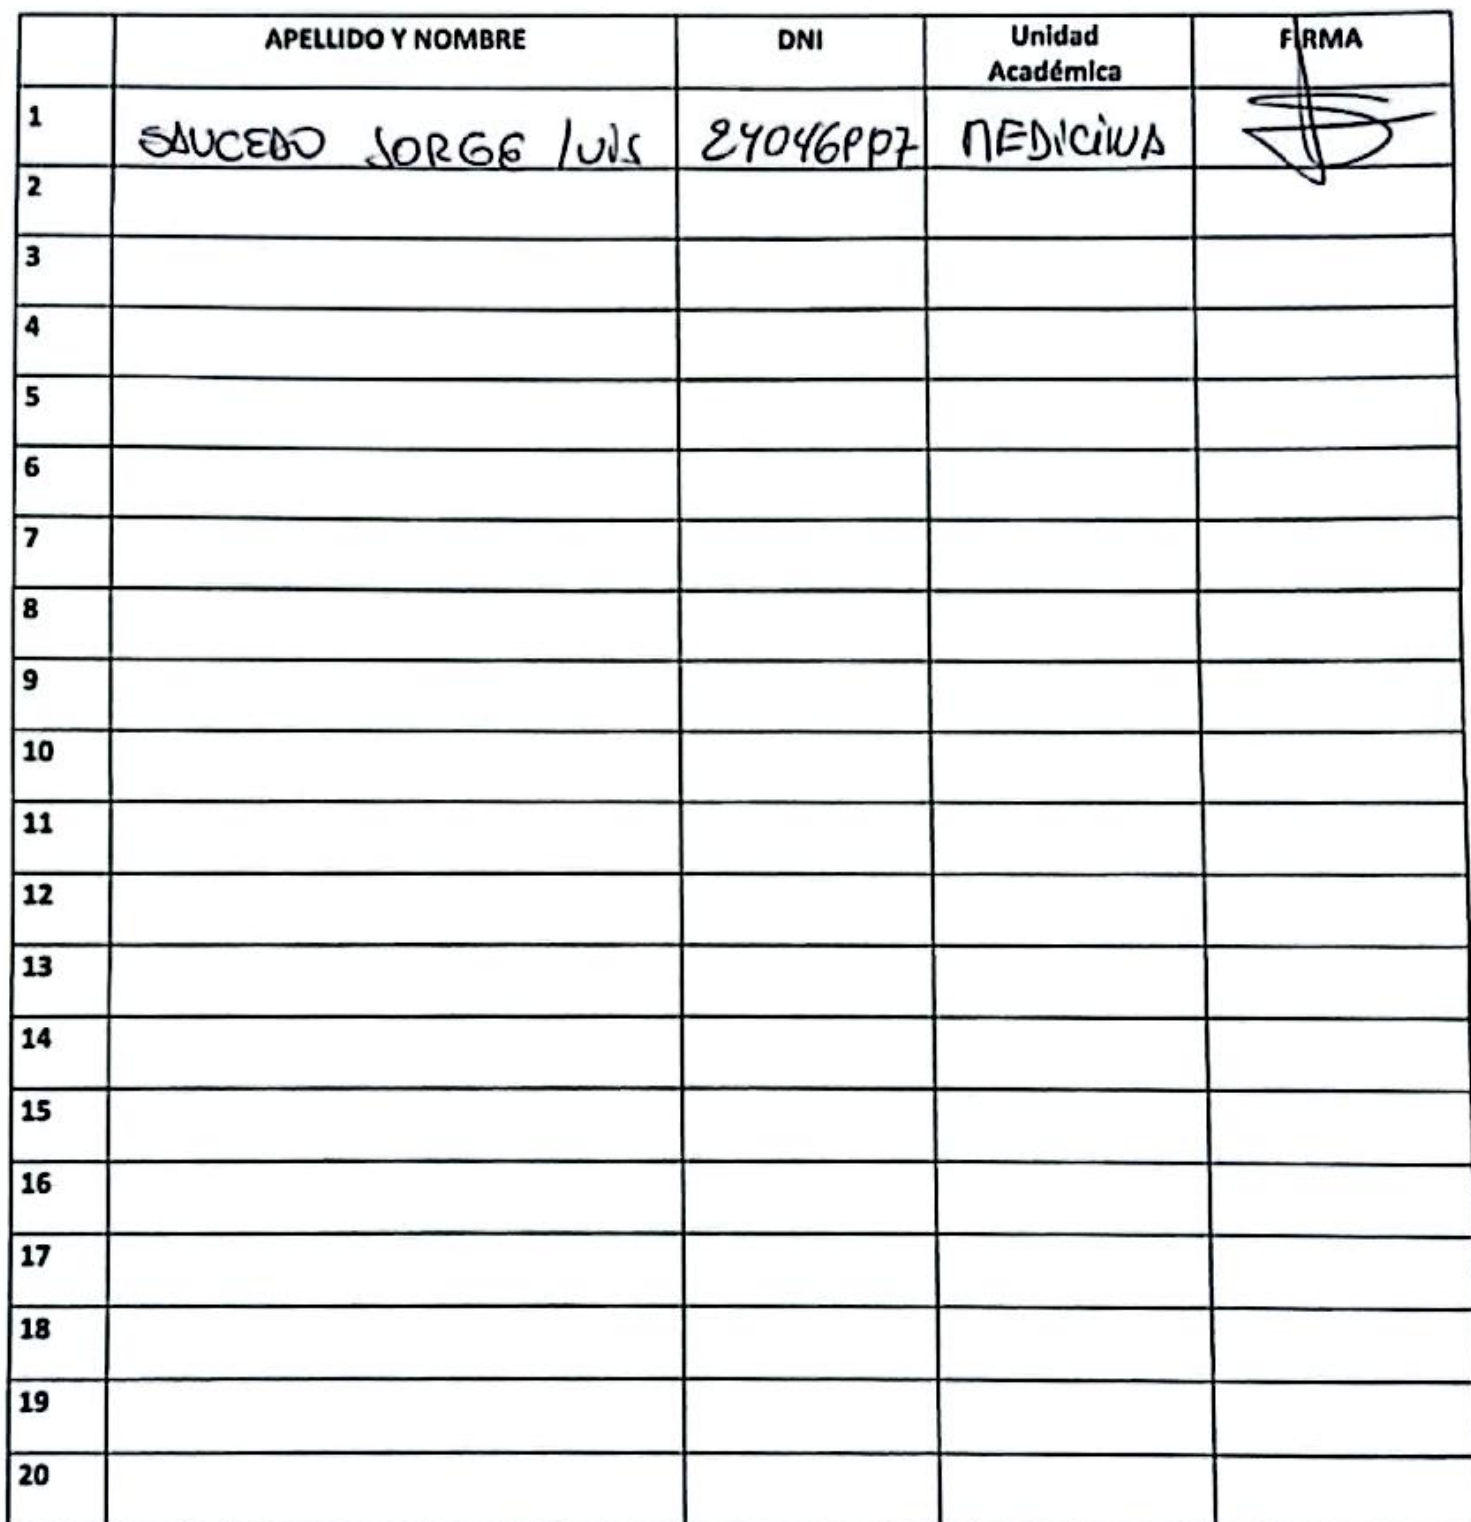 APELLIDO Y NOMBRE DNI Unidad Académica FIRMA
1 SAUCEDO JORGE LUIS MEDICINA
2
3
4
5
6
7
8
9
10
11
12
13
14
15
16
17
18
19
20